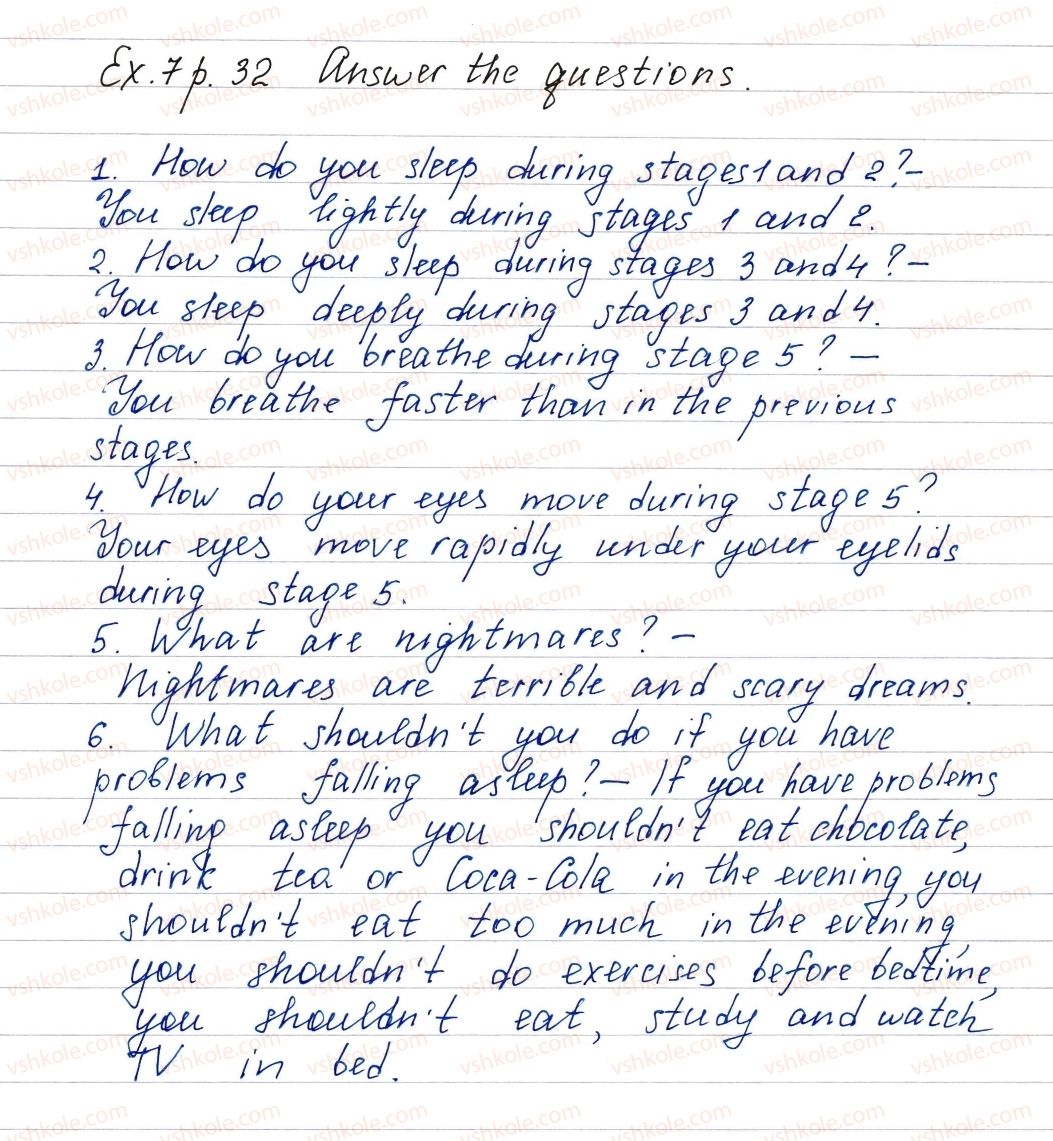 Ex. 7 p. 32 Answer the questions.
1. How do you sleep during stages 1 and 2? –
You sleep lightly during stages 1 and 2.
2. How do you sleep during stages 3 and 4? –
You sleep deeply during stages 3 and 4.
3. How do you breathe during stage 5? –
You breathe faster than in the previous
stages.
4. How do your eyes move during stage 5?
Your eyes move rapidly under your eyelids
during stage 5.
5. What are nightmares? –
Nightmares are terrible and scary dreams.
6. What shouldn't you do if you have
problems falling asleep? – If you have problems
falling asleep you shouldn't eat chocolate,
drink tea or Coca-Cola in the evening, you
shouldn't eat too much in the evening,
you shouldn't do exercises before bedtime,
you shouldn't eat, study and watch
TV in bed.
vshkole.com